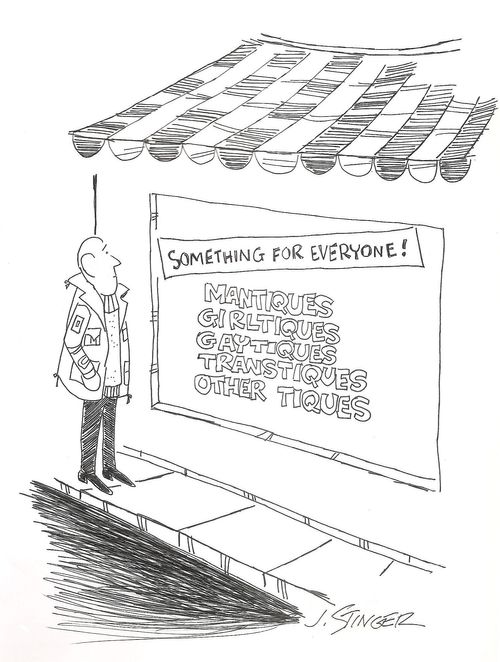 SOMETHING FOR EVERYONE!
MANTIQUES
GIRLTIQUES
GAYTIQUES
TRANSTIQUES
OTHER TIQUES
J. STINGER